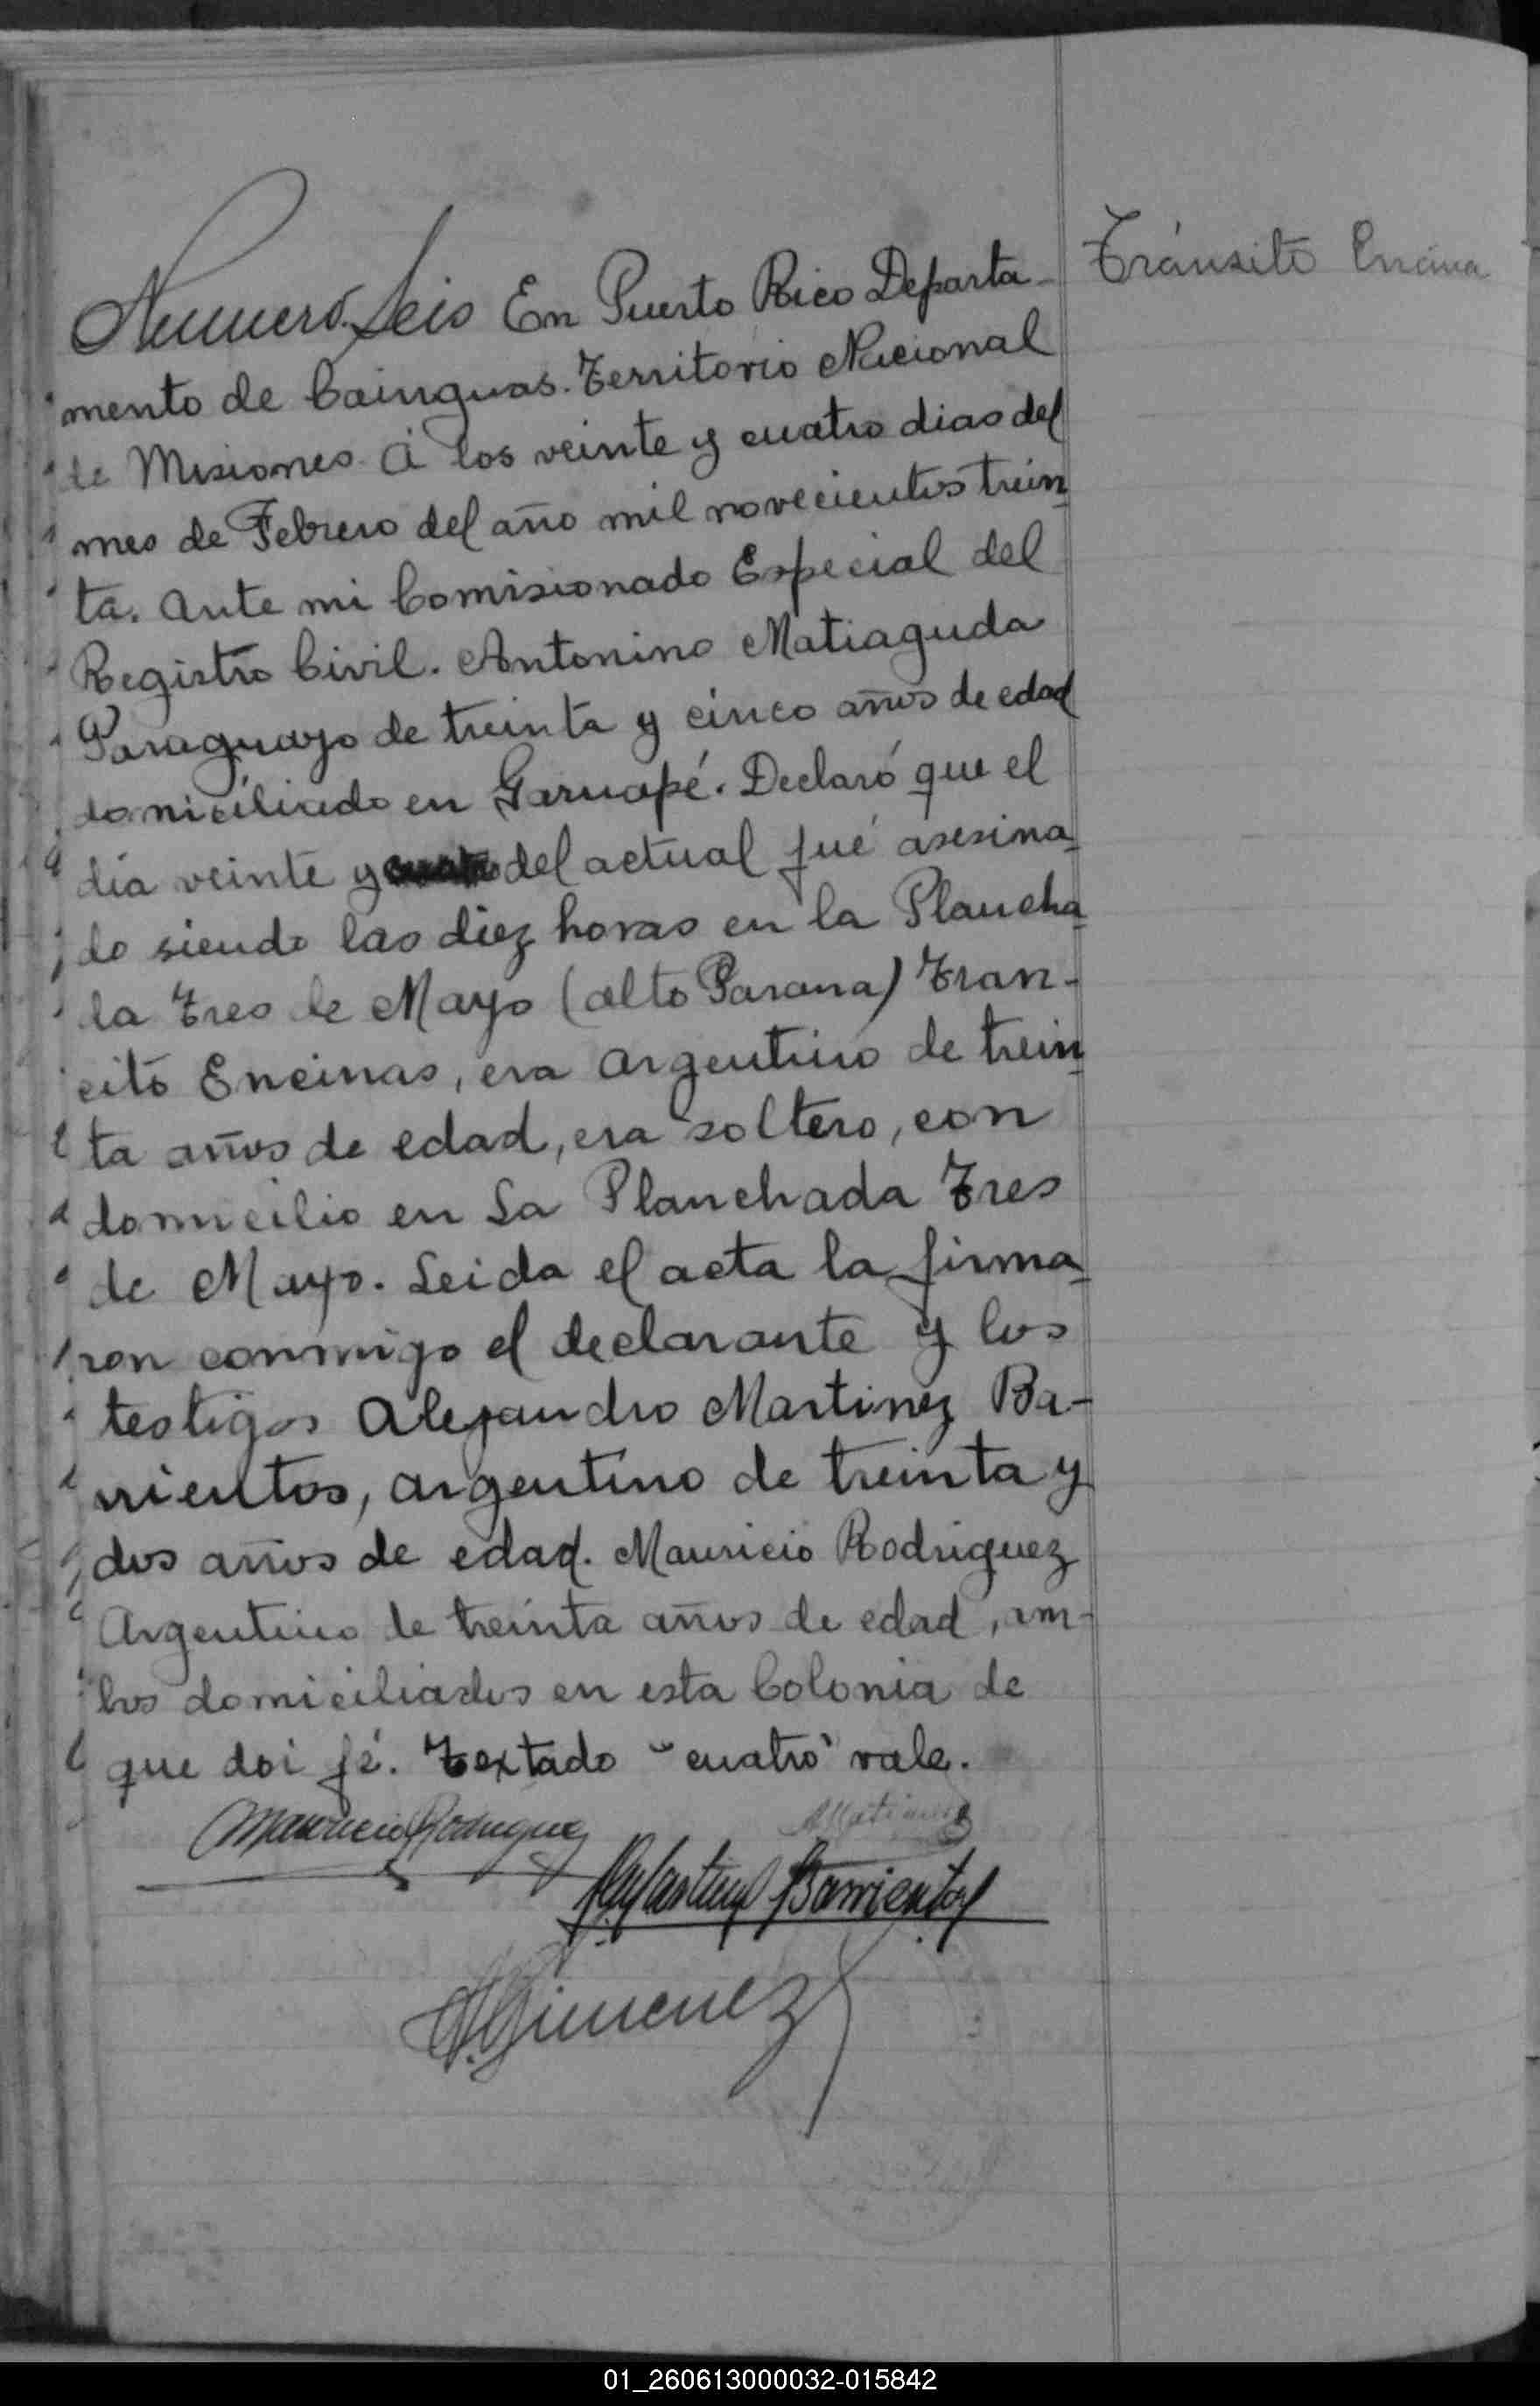 Tránsito Encina
Numero Seis En Puerto Rico Departa-
mento de Cainguas. Territorio Nacional
de Misiones. A los veinte y cuatro dias del
mes de Febrero del año mil novecientos trein
ta. Ante mi Comisionado Especial del
Registro Civil. Antonino Matiaguda
Paraguayo de treinta y cinco años de edad
domiciliado en Garuapé. Declaró que el
día veinte y cuatro del actual fué asesina
do siendo las diez horas en la Plancha
da Tres de Mayo (alto Parana) Tran-
cito Encinas, era argentino de trein
ta años de edad, era soltero, con
domicilio en La Planchada Tres
de Mayo. Leida el acta la firma
ron conmigo el declarante y los
testigos Alejandro Martinez Ba-
rrientos, argentino de treinta y
dos años de edad. Mauricio Rodriguez
Argentino de treinta años de edad, am-
bos domiciliados en esta Colonia de
que doi fé. Textado "cuatro" vale.
Mauricio Rodriguez
Barrientos
Gimenez
01_260613000032-015842